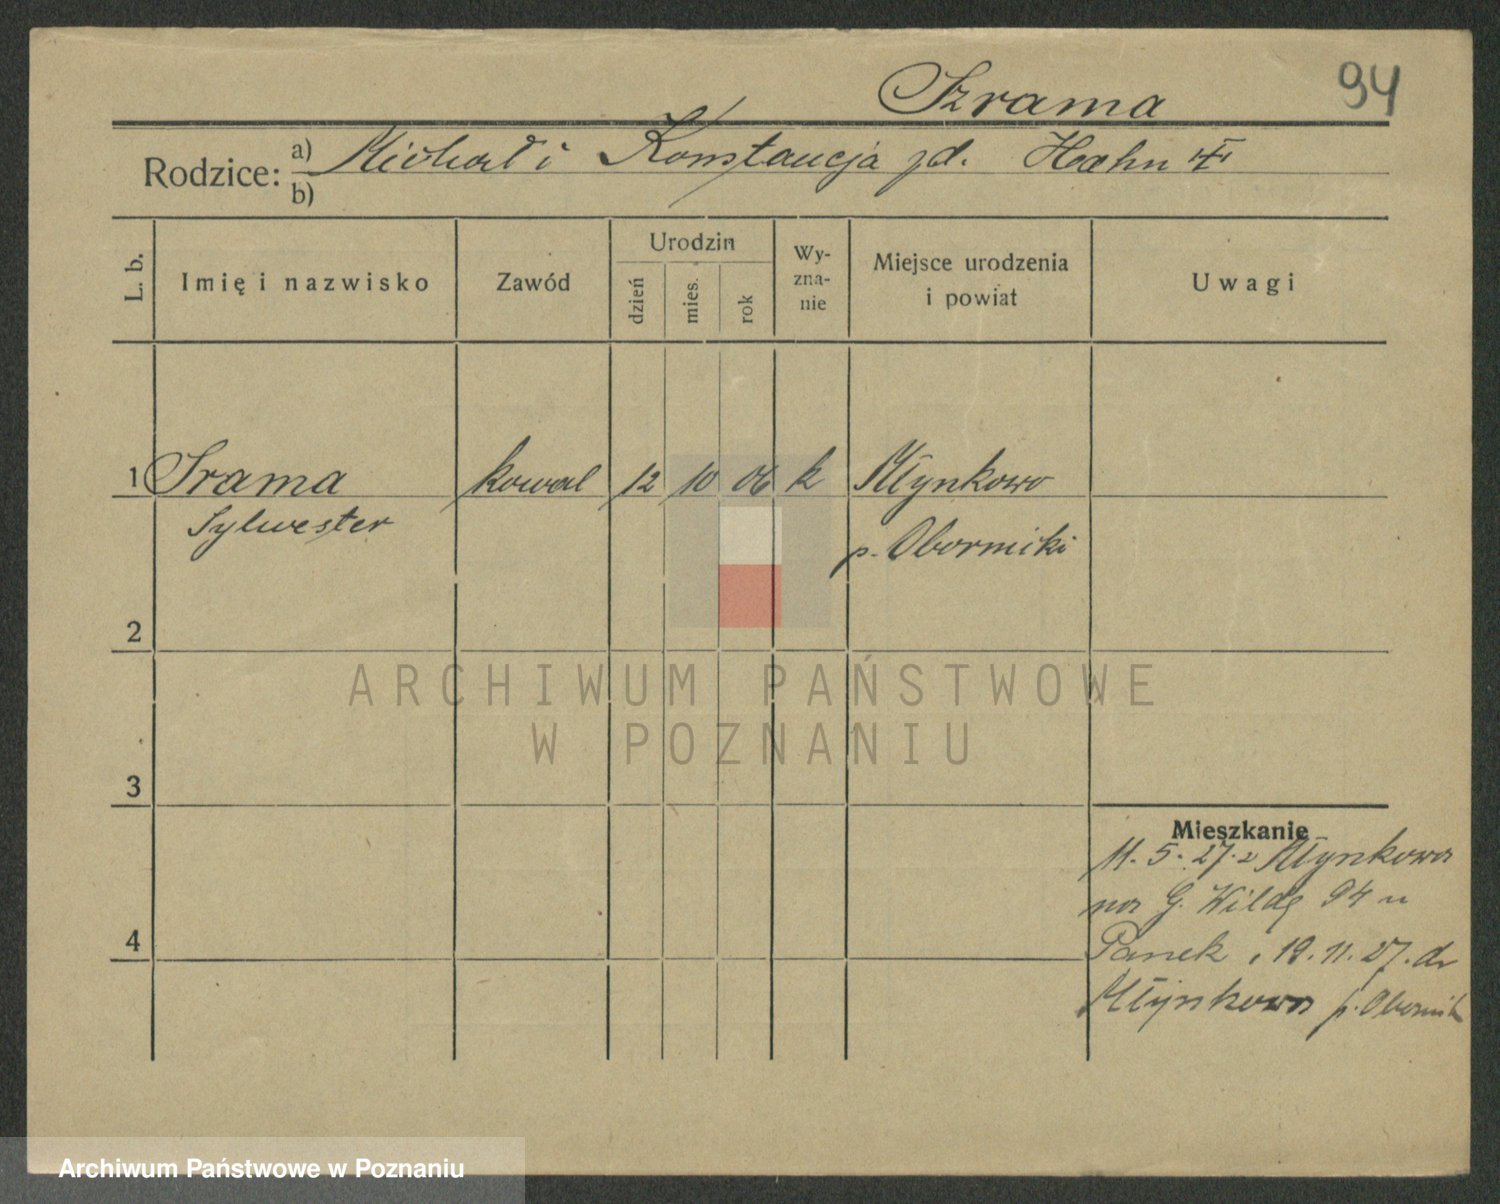 Szrama
94
Rodzice: a) Michał i Konstancja zd. Hahn
b)
L. b.
Imię i nazwisko
Zawód
Urodzin
dzień
mies.
rok
Wy-
zna-
nie
Miejsce urodzenia
i powiat
Uwagi
1 Srama kowal 12 10 06 k Młynkowo
Sylwester p. Oborniki
2
ARCHIWUM PAŃSTWOWE
W POZNANIU
3
Mieszkanie
11. 5. 27. z Młynkowa
na G. Wildę 94 u
Panek, 19. 11. 27. do
4
Młynkowa p. Obornik
Archiwum Państwowe w Poznaniu